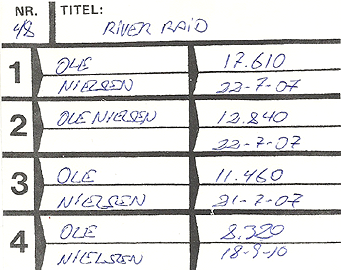 NR. TITEL:
48 RIVER RAID
1 OLE 17.610
NIELSEN 22-7-07
2 OLE NIELSEN 12.840
22-7-07
3 OLE 11.460
NIELSEN 21-7-07
4 OLE 8.320
NIELSEN 18-9-10